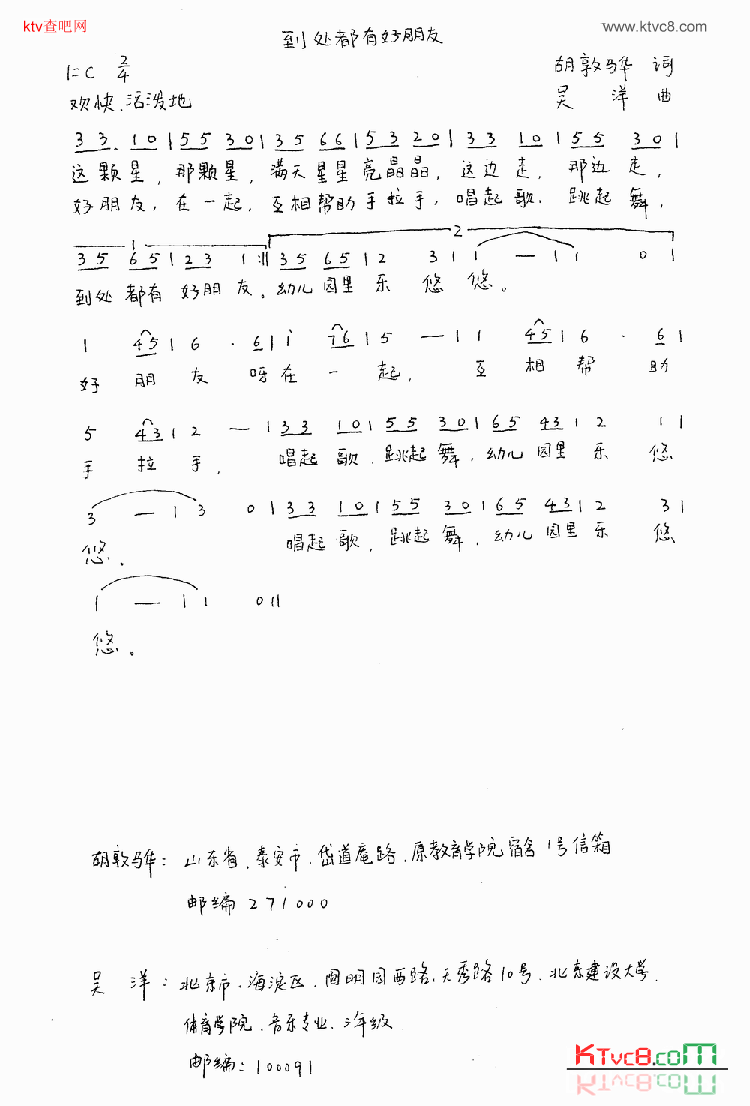 ktv查吧网
www.ktvc8.com
到处都有好朋友
1=C 2/4
胡敦骅 词
欢快、活泼地
吴 洋 曲
3 3. 1 0 | 5 5 3 0 | 3 5 6 6 | 5 3 2 0 | 3 3 1 0 | 5 5 3 0 |
这颗星，那颗星，满天星星亮晶晶，这边走，那边走，
好朋友，在一起，互相帮助手拉手，唱起歌，跳起舞，
1 2
3 5 6 5 | 2 3 1 :|| 3 5 6 5 | 2 3 | 1 — | 1 0 |
到处都有好朋友。幼儿园里乐悠悠。
1 4 5 | 6 . 6 | i 7 6 | 5 — | 1 4 5 | 6 . 6 |
好朋友呀在一起，互相帮助
5 4 3 | 2 — | 3 3 1 0 | 5 5 3 0 | 6 5 4 3 | 2 1 |
手拉手，唱起歌，跳起舞，幼儿园里乐悠
3 — | 3 0 | 3 3 1 0 | 5 5 3 0 | 6 5 4 3 | 2 3 |
悠。唱起歌，跳起舞，幼儿园里乐悠
1 — | 1 0 ||
悠。
胡敦骅：山东省、泰安市、岱道庵路、原教育学院宿舍1号信箱
邮编 271000
吴 洋：北京市、海淀区、圆明园西路、天秀路10号、北京建设大学、
体育学院、音乐专业、三年级
邮编：100091
KTvc8.com